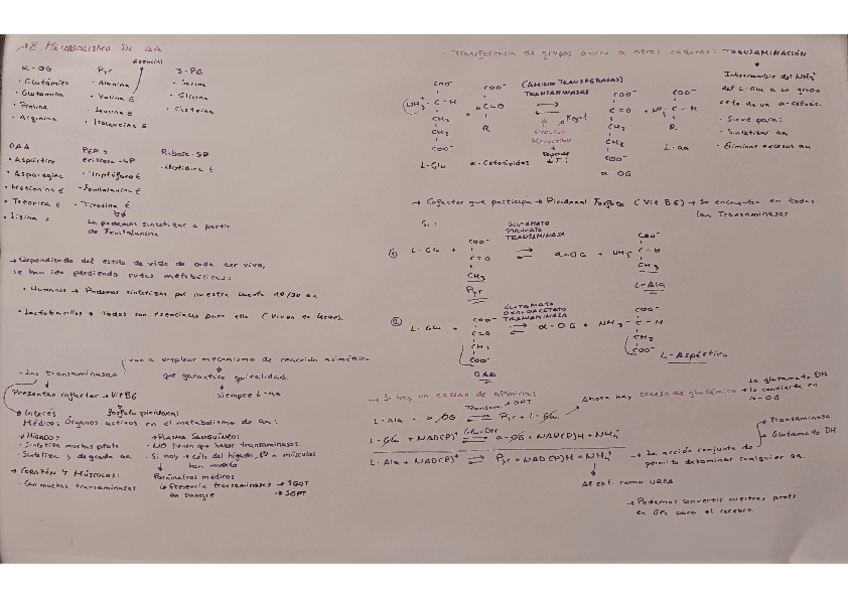 → 8. Metabolismo De AA
Esencial
α-OG
Pyr
3-PG
• Glutámico
• Alanina
• Serina
• Glutamina
• Valina E
• Glicina
• Prolina
• Leucina E
• Cisteína
• Arginina
• Isoleucina E
OAA
PEP y eritrosa-4P
Ribosa-5P
• Aspártico
• Triptófano E
• Histidina E
• Asparagina
• Fenilalanina E
• Metionina E
• Tirosina E
• Treonina E
La podemos sintetizar a partir
• Lisina E
de Fenilalanina
→ Dependiendo del estilo de vida de cada ser vivo,
se han ido perdiendo rutas metabólicas:
• Humanos → Podemos sintetizar por nuestra cuenta 10/20 aa
• Lactobacillus → Todos son esenciales para ello (Viven en leche).
- Las transaminasas
van a emplear mecanismo de reacción asimétrica
que garantice quiralidad.
siempre L-aa
Presentan cofactor → Vit B6
fosfato piridoxal
→ Interés
Médico: Órganos activos en el metabolismo de aa:
→ HÍGADO:
• Sintetiza muchas prots
• Sintetiza y degrada aa
→ CORAZÓN Y MÚSCULOS:
• Con muchas transaminasas
→ PLASMA SANGUÍNEO:
• NO tienen que haber transaminasas.
• Si hay → céls del hígado, o músculos
han muerto
Parámetros médicos
↳ Presencia transaminasas → SGOT
en sangre → SGPT
- Transferencia de grupos amino a otras cadenas: TRANSAMINACIÓN
Intercambio del NH₃⁺
del L-Glu a un grupo
ceto de un α-cetoác.
• Sirve para:
• Sintetizar aa
• Eliminar excesos aa
(AMINO TRANSFERASAS)
TRANSAMINASAS
COO⁻
NH₃⁺ - C - H
CH₂
CH₂
COO⁻
L-Glu
+
COO⁻
C=O
R
α-Cetoácidos
Keq≈1
Proceso
Reversible
COO⁻
C=O
CH₂
CH₂
COO⁻
α OG
+
COO⁻
NH₃⁺ - C - H
R
L-aa
→ Cofactor que participa → Piridoxal Fosfato (Vit B6) → Se encuentra en todas
las TRANSAMINASAS
GLUTAMATO
PIRUVATO
TRANSAMINASA
① L-Glu +
COO⁻
C=O
CH₃
Pyr
⇌ α-OG +
COO⁻
NH₃ - C - H
CH₃
L-Ala
GLUTAMATO
OXALOACETATO
TRANSAMINASA
② L-Glu +
COO⁻
C=O
CH₂
COO⁻
OAA
⇌ α-OG +
COO⁻
NH₃ - C - H
CH₂
COO⁻
L-Aspártico
→ Si hay un exceso de alaninas
Ahora hay exceso de glutámico → La glutamato DH
lo convierte en
α-OG
Transam. → GPT
L-Ala + α OG ⇌ Pyr + L-Glu
Glu-DH
L-Glu + NAD(P)⁺ ⇌ α-OG + NAD(P)H + NH₄⁺
L-Ala + NAD(P)⁺ ⇌ Pyr + NAD(P)H + NH₄⁺
Al ext. como UREA
→ Transaminasa
→ Glutamato DH
→ La acción conjunta de
permite desaminar cualquier aa.
→ Podemos convertir nuestras prots
en Glc para el cerebro